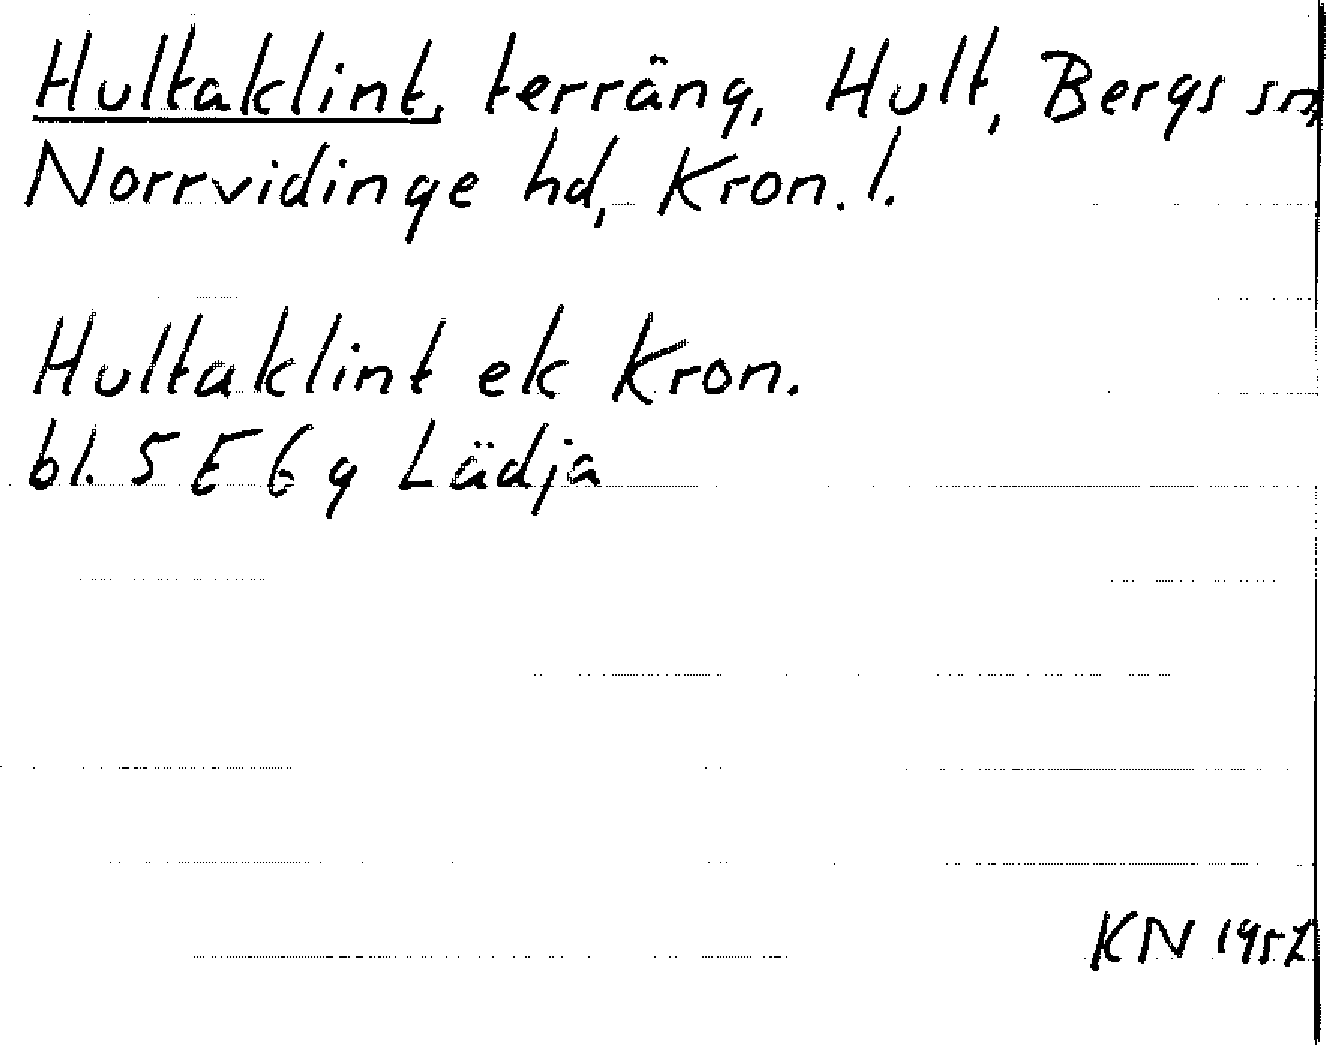 Hultaklint, terräng, Hult, Bergs sn,
Norrvidinge hd, Kron. l.
Hultaklint ek Kron.
bl. 5 E 6 g Lädja
KN 1957